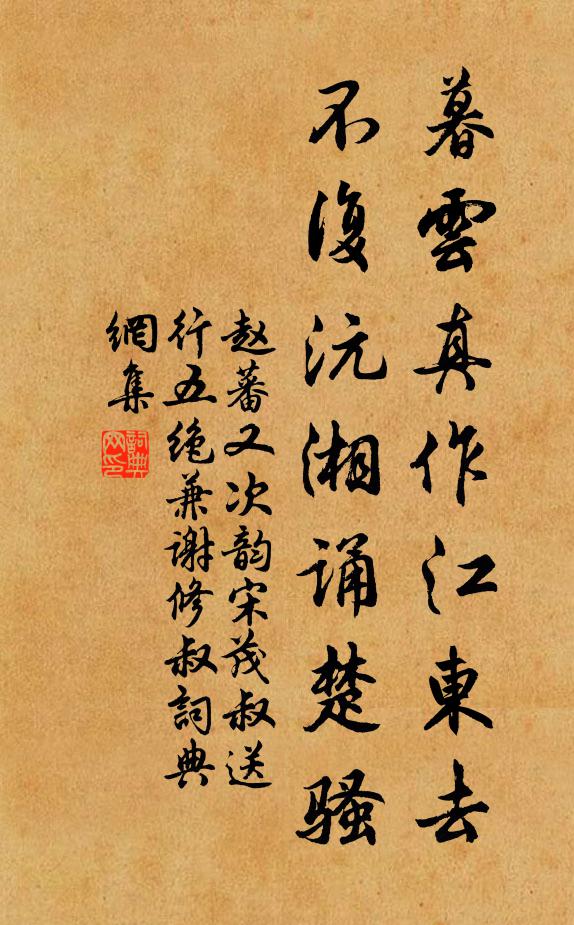 暮雲真作江東去
不復沅湘誦楚騷
赵蕃又次韵宋茂叔送
行五绝兼谢修叔詞典
網集
詞典
网印